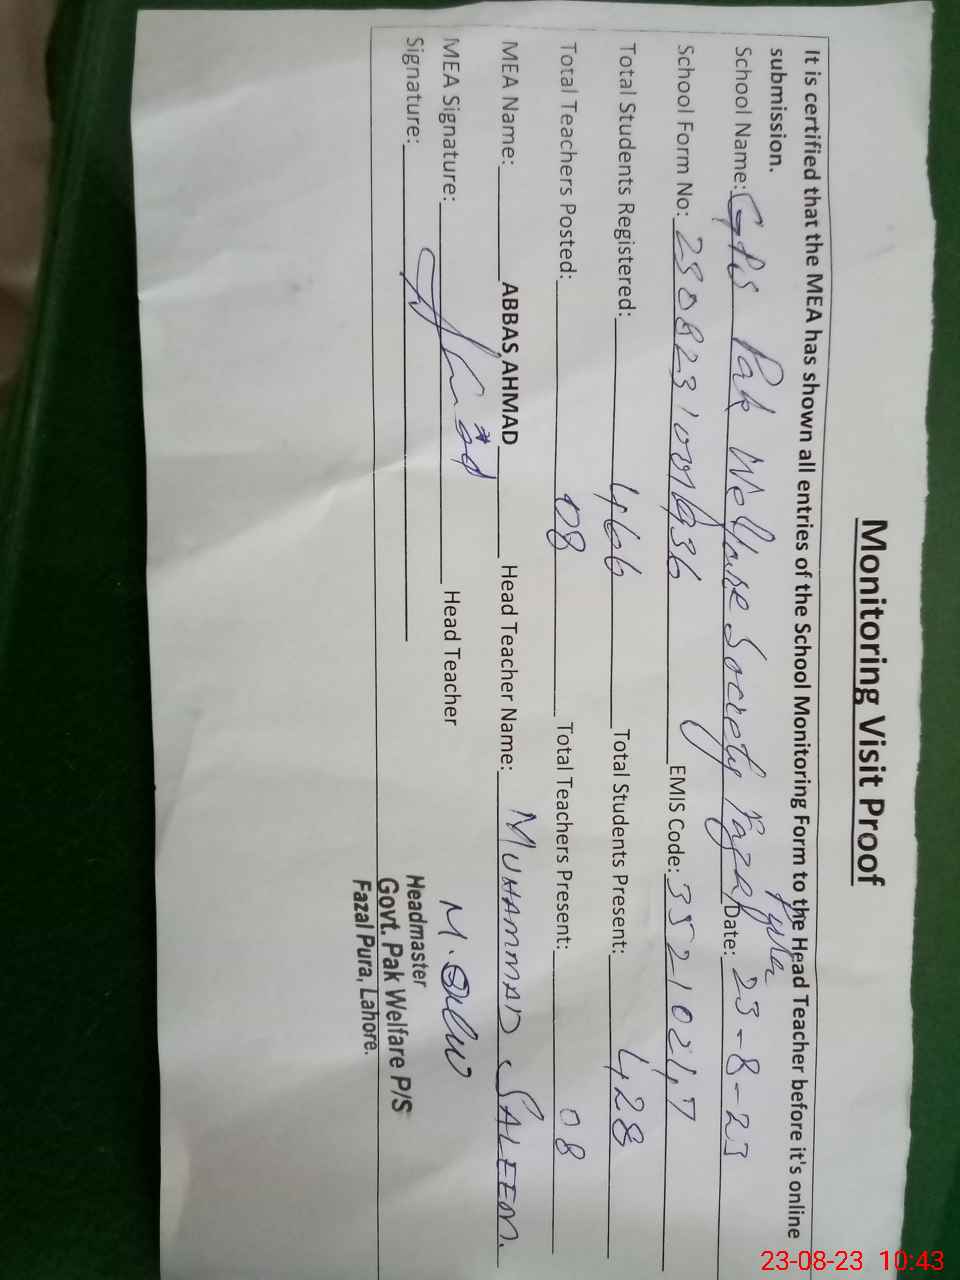 Monitoring Visit Proof
It is certified that the MEA has shown all entries of the School Monitoring Form to the Head Teacher before it's online
submission.
School Name: GPS Pak Welfare Society Fazal Pura Date: 23-8-23
School Form No: EMIS Code: 35210247
Total Students Registered: 466 Total Students Present: 428
Total Teachers Posted: 08 Total Teachers Present: 08
MEA Name: ABBAS AHMAD Head Teacher Name: MUHAMMAD SALEEM.
MEA Signature: Head Teacher
Signature:
Headmaster
Govt. Pak Welfare P/S
Fazal Pura, Lahore.
23-08-23 10:43